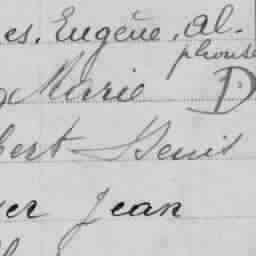 es. Eugène, Al.
phonse
Marie D
bert Denis
er Jean